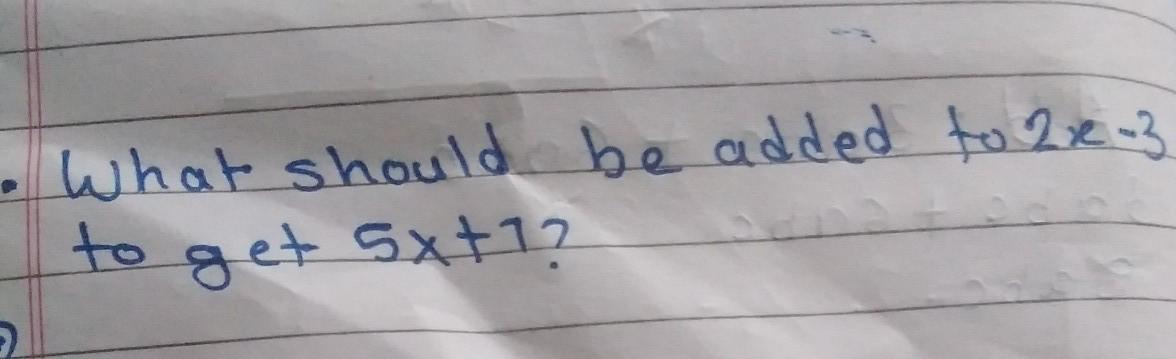 . What should be added to 2x-3
to get 5x+7?